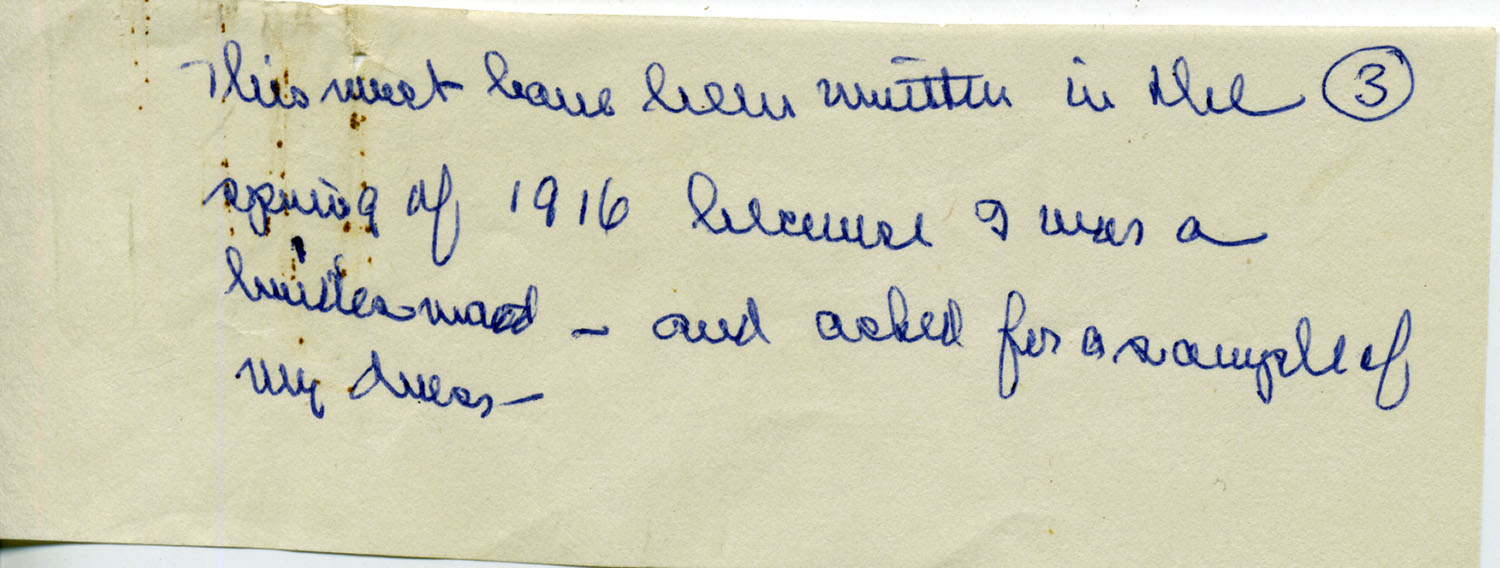 This must have been written in the ③
spring of 1916 because I was a
bridesmaid – and asked for a sample of
my dress –